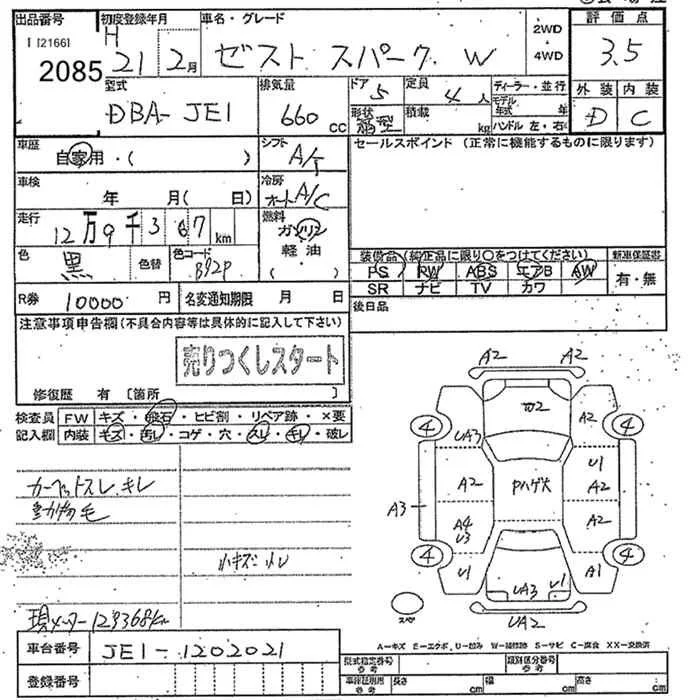 出品番号 初度登録年月 車名・グレード 評価点
I [2166]
2085
H 21 2月 ゼスト スパーク W
2WD
・
4WD
3.5
型式 排気量 ドア 定員 ディーラー・並行 外装 内装
DBA-JE1 660 CC 5 4人
モデル年式 年
D C
形状 箱型 積載 kg ハンドル 左・右
車歴 自家用・( ) シフト A/T セールスポイント (正常に機能するものに限ります)
車検 年 月( 日) 冷房 オート A/C
走行 12万9千367km 燃料 ガソリン
軽油
( )
色 黒 色替 色コード B92P
装備品(純正品に限り○をつけてください) 新車保証書
PS RW ABS エアB AW 有・無
SR ナビ TV カワ
R券 10000円 名変通知期限 月 日 後日品
注意事項申告欄(不具合内容等は具体的に記入して下さい)
売りつくしスタート
修復歴 有 〔箇所 〕
検査員 FW キズ・飛石・ヒビ割・リペア跡・×要
記入欄 内装 キズ・汚レ・コゲ・穴・スレ・キレ・破レ
カーペットスレ キレ
動物毛
小キズ 小レ
現メーター129368km
A2 A2
4 UA3 A2 4
U1
A2 Pハゲ大 A2
A3 A4 A2
U3
4 U1 UA3 U1 A1 4
スペア UA2
A-キズ E-エクボ U-凹み W-補修跡 S-サビ C-腐食 XX-交換済
車台番号 JE1-1202021
登録番号
型式指定番号 参考 類別区分番号 参考
車検証用 参考 長さ cm 幅 cm 高さ cm